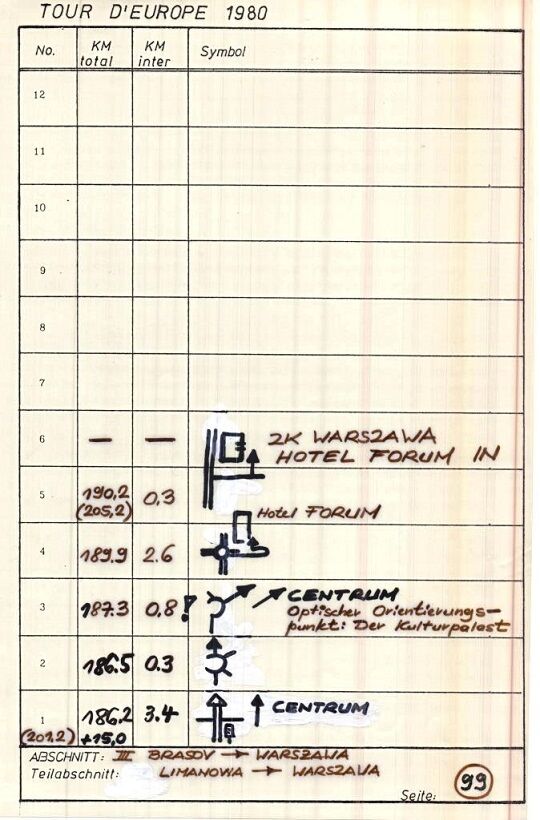 TOUR D'EUROPE 1980
No. KM total KM inter Symbol
12
11
10
9
8
7
6 — — ZK WARSZAWA
HOTEL FORUM IN
5 190,2 0,3
(205,2)
Hotel FORUM
4 189.9 2.6
3 187.3 0,8 ! CENTRUM
Optischer Orientierungs-
punkt: Der Kulturpalast
2 186.5 0.3
1 186.2 3.4 CENTRUM
(201.2) +15,0
ABSCHNITT: III BRASOV → WARSZAWA
Teilabschnitt: LIMANOWA → WARSZAWA
Seite: 99